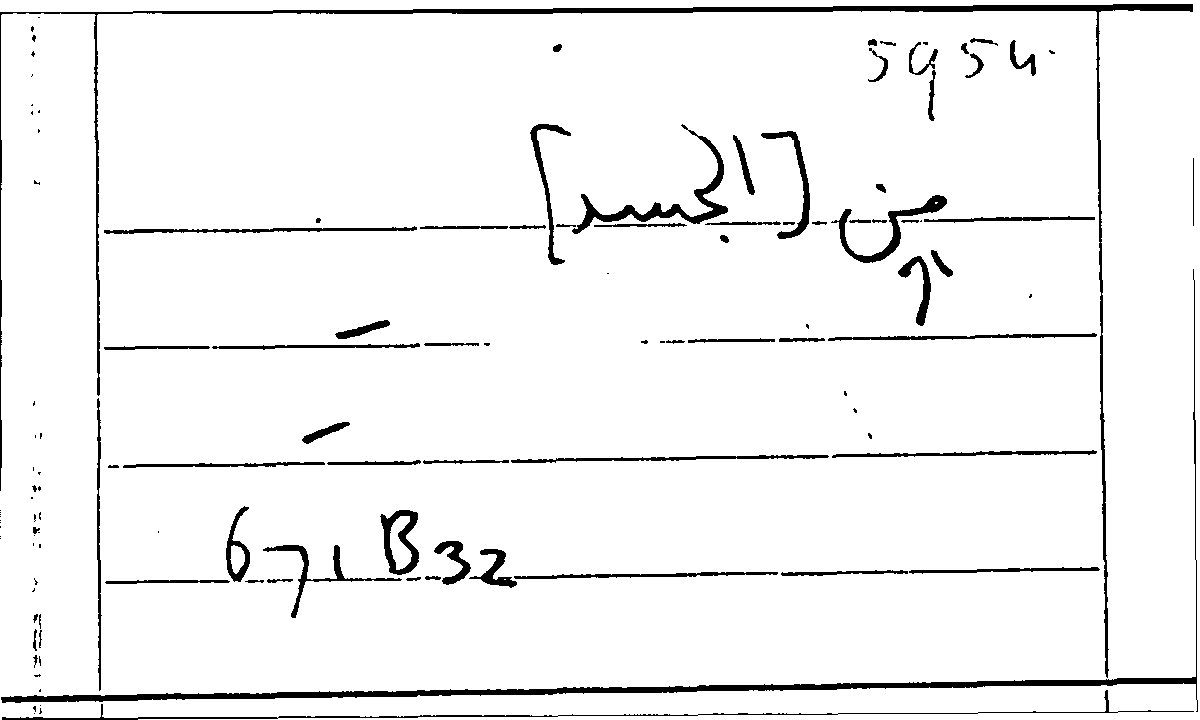 5954
من [الجسد]
671 B32